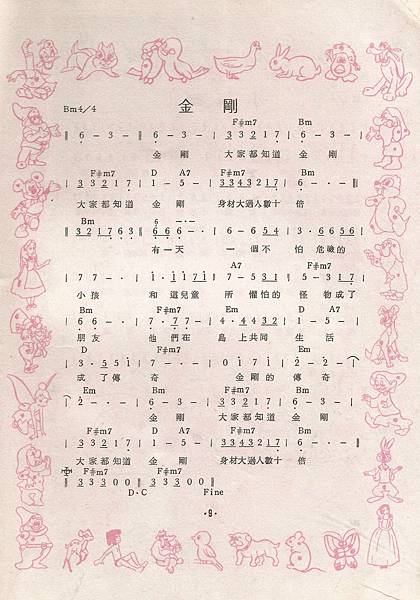 金剛
Bm4/4
F#m7 Bm
‖ 6 - 3 - | 6 - 3 - | 3 3 2 1 7 | 6 - 3 - |
金剛 大家都知道 金剛
F#m7 D A7 F#m7 Bm
| 3 3 2 1 7 | 1 - 5 - | 3 3 4 3 2 1 7 | 6 - - - ‖
大家都知道 金剛 身材大過人數十 倍
Bm 6 - - -
‖ 3 2 1 7 6 3 | 6 6 6 - - | 6 - 6 5 4 | 3 · 6 6 5 6 |
有一天 一個不 怕危險的
A7 F#m7
| 7 7 - - | 1 · 1 1 7 1 | 7 - 5 3 1 | 5 - 3 1 7 |
小孩 和這兒童 所懼怕的 怪物成了
Bm F#m7 Em Bm
| 6 6 - - | 7 · 7 7 - | 4 · 4 4 3 2 | 1 - 5 - |
朋友 他們在 島上共同 生活
D F#m7
| 3 · 5 5 1 | 7 - - - | 0 1 7 1 | 2 - 1 - |
成了傳奇 金剛的 傳奇
Em Em Bm F#m7 Bm
| 2 - - - | 6 - 3 - | 3 3 2 1 7 | 6 - 3 - |
金剛 大家都知道 金剛
F#m7 D A7 F#m7 Bm
| 3 3 2 1 7 | 1 - 5 - | 3 3 4 3 2 1 7 | 6 - - - |
大家都知道 金剛 身材大過人數十 倍
F#m7 F#m7
‖ 3 3 3 0 0 ‖ 3 3 3 0 0 ‖
D·C Fine
·9·